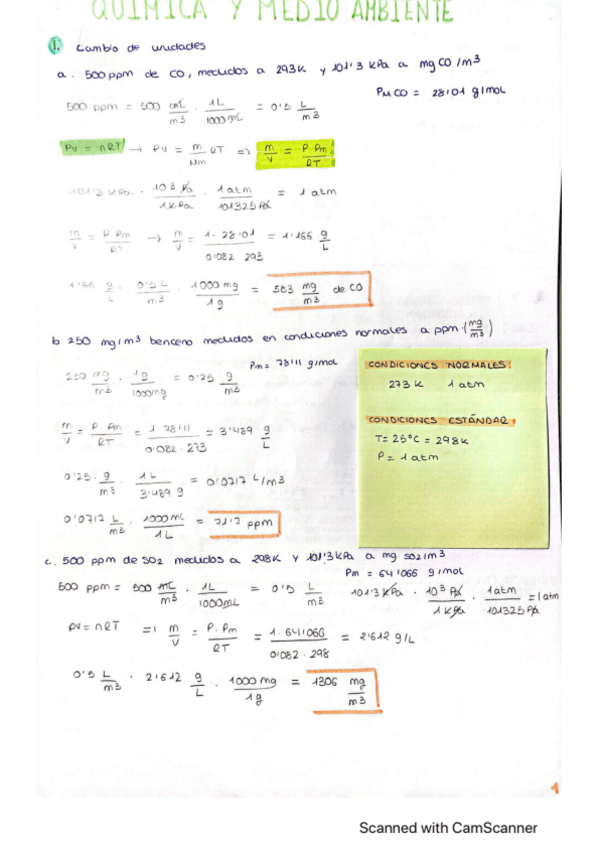 QUIMICA Y MEDIO AMBIENTE
1. Cambio de unidades
a. 500 ppm de CO, medidos a 293K y 101'3 kPa a mg CO/m3
PM CO = 28'01 g/mol
500 ppm = 500 mL/m3 · 1L/1000mL = 0'5 L/m3
PV = nRT → PV = m/Mm RT => m/V = P Pm/RT
101'3 kPa · 10^3 Pa/1kPa · 1atm/101325 Pa = 1 atm
m/V = P Pm/RT → m/V = 1· 28'01/0'082 · 293 = 1'166 g/L
1'166 g/L · 0'5 L/m3 · 1000 mg/1g = 583 mg/m3 de CO
b 250 mg/m3 benceno medidos en condiciones normales a ppm (mg/m3)
Pm = 78'11 g/mol
250 mg/m3 · 1g/1000mg = 0'25 g/m3
m/V = P. Pm/RT = 1 78'11/0'082 · 273 = 3'489 g/L
0'25 · g/m3 · 1L/3'489 g = 0'0717 L/m3
0'0717 L/m3 · 1000mL/1L = 71'7 ppm
CONDICIONES NORMALES:
273 K 1 atm
CONDICIONES ESTÁNDAR:
T= 25ºC = 298k
P = 1 atm
c. 500 ppm de SO2 medidos a 298K y 101'3 kPa a mg SO2/m3
Pm = 64'066 g/mol
500 ppm = 500 mL/m3 · 1L/1000mL = 0'5 L/m3
101'3 kPa · 10^3 Pa/1 kPa · 1atm/101325 Pa = 1 atm
PV = nRT => m/V = P. Pm/RT = 1. 64'066/0'082 · 298 = 2'612 g/L
0'5 L/m3 · 2'612 g/L · 1000 mg/1g = 1306 mg/m3
1
Scanned with CamScanner